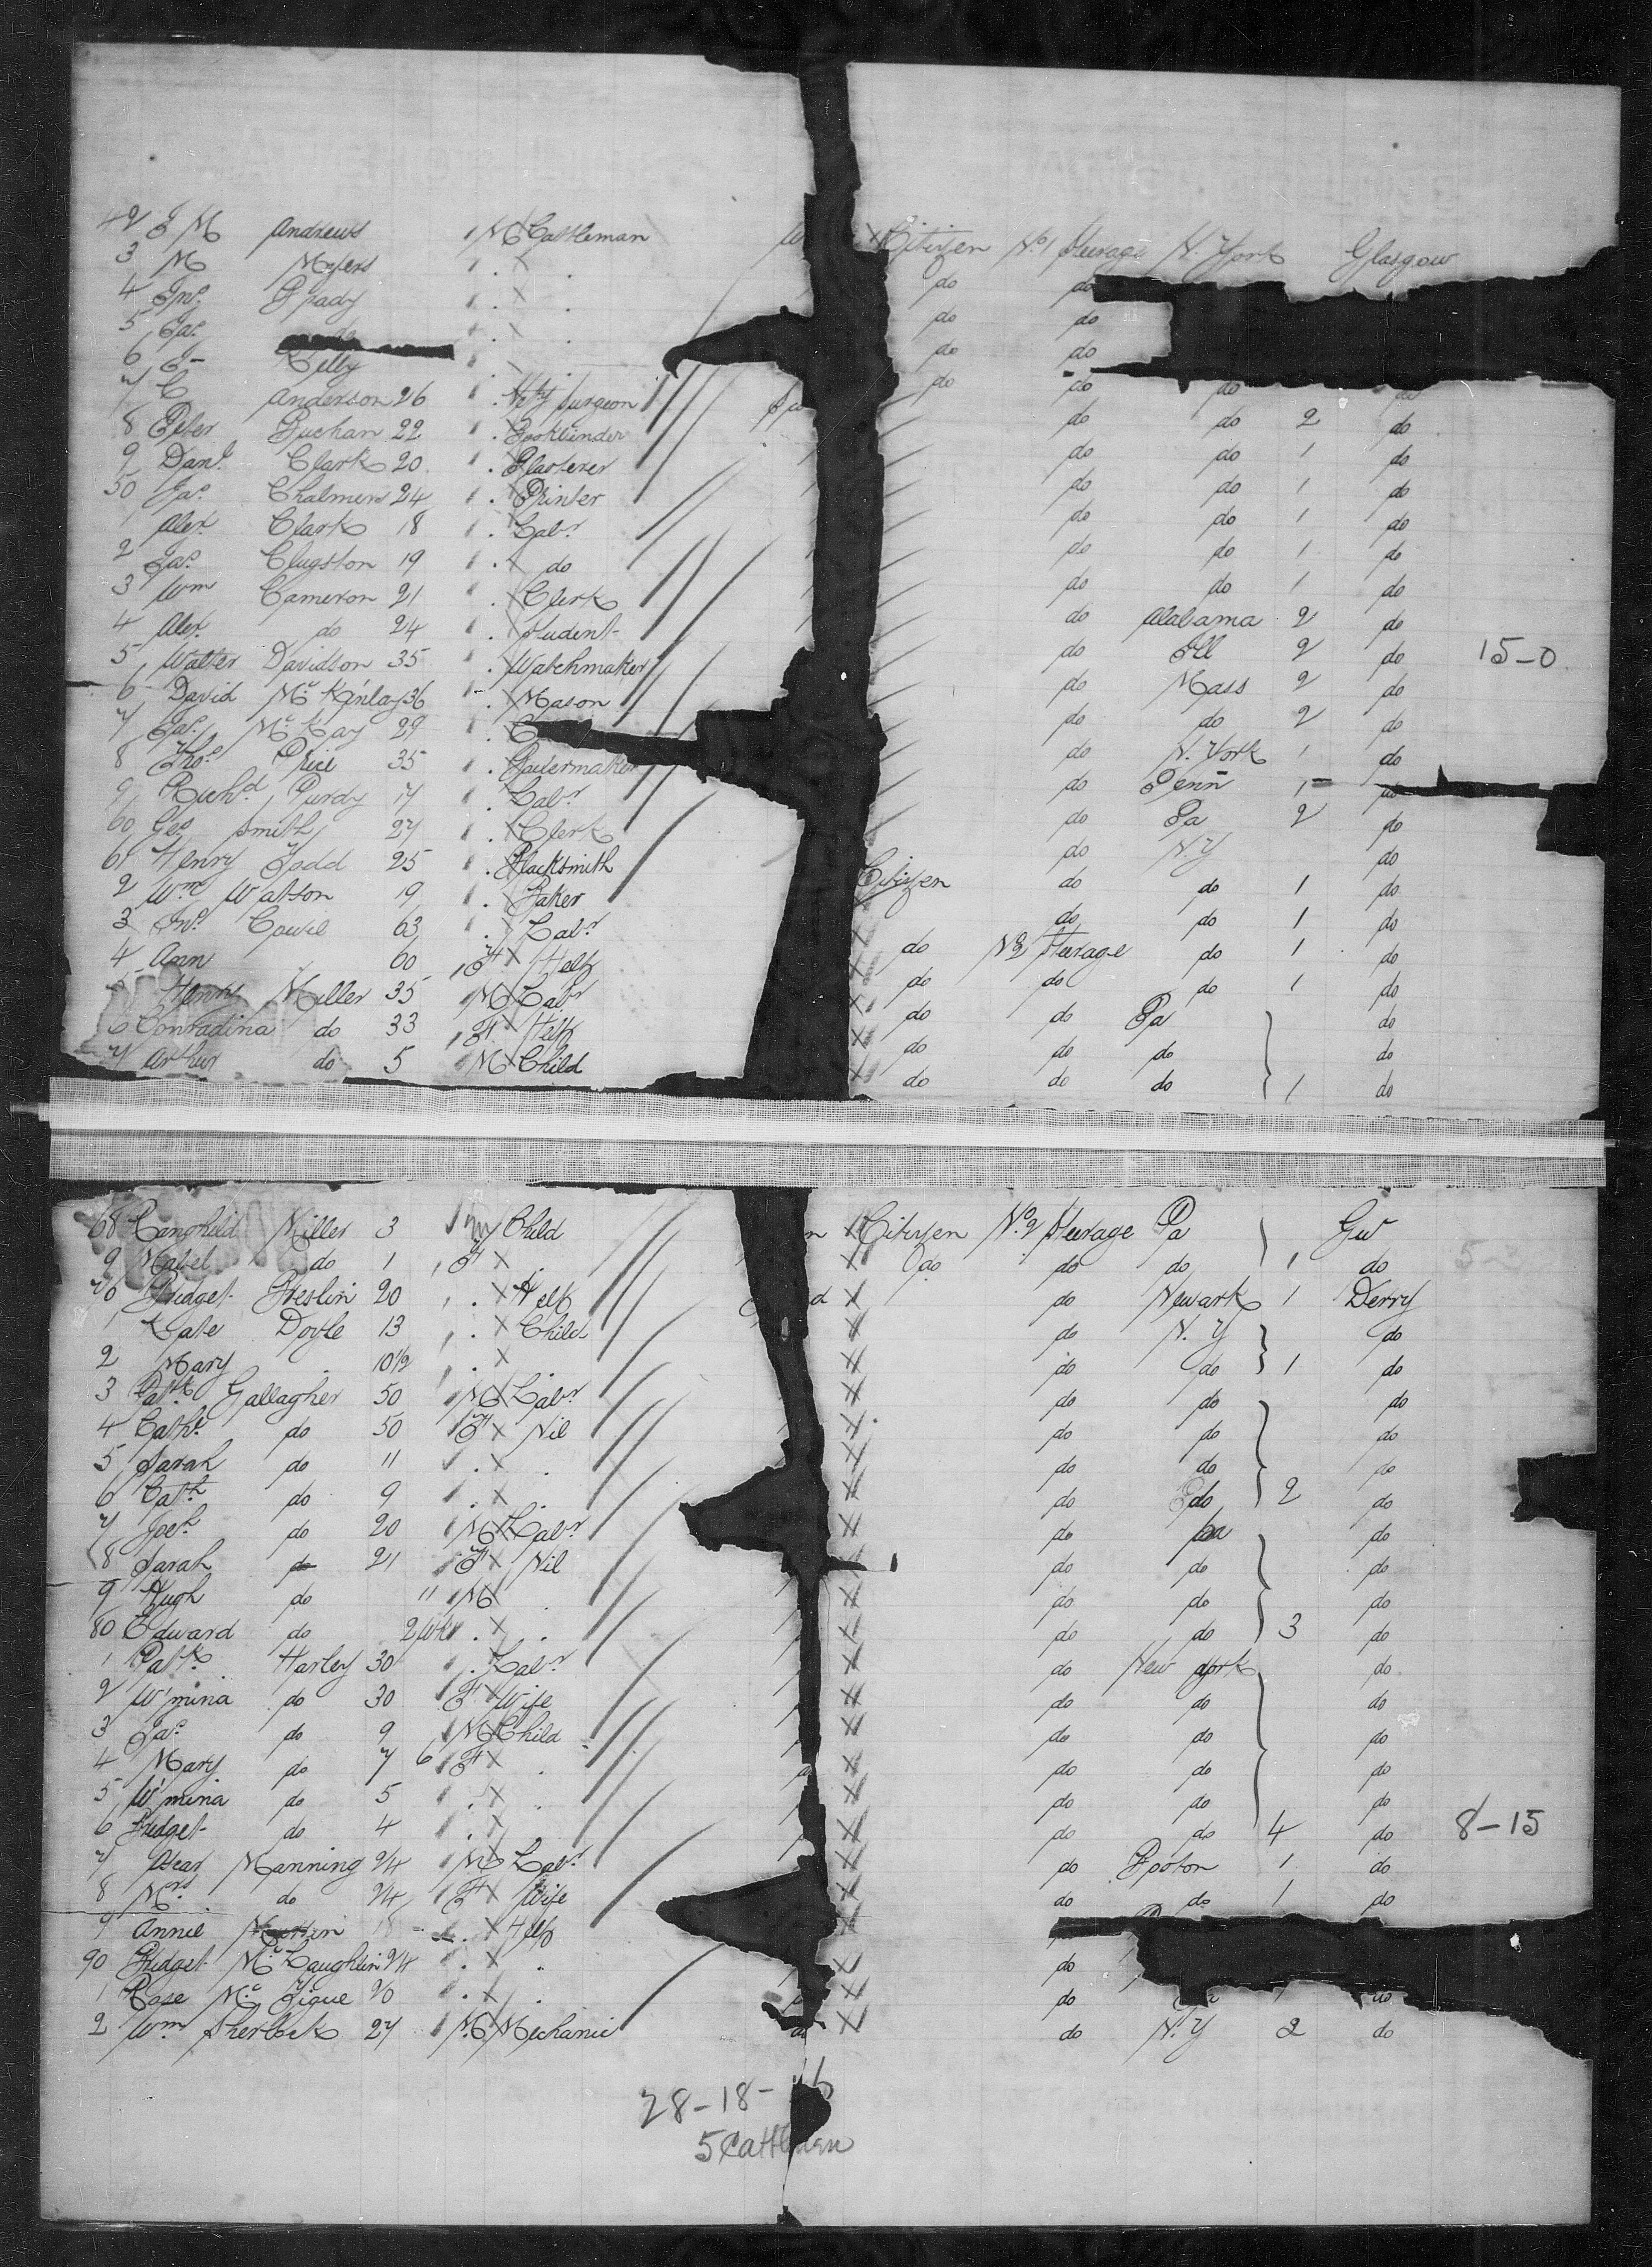 42 J M Andrews M Cattleman Citizen No 1 Steerage N. York Glasgow
3 M Myers " . do do
4 Jno. Grady " . do do
5 Jas. " . do do
6 J- Kelly " . do do do
7 C Anderson 26 " . Vety Surgeon do do 2 do
8 Peter Buchan 22 " . Bookbinder do do 1 do
9 Danl. Clark 20 " . Plasterer do do 1 do
50 Jas. Chalmers 24 " . Printer do do 1 do
1 Alex. Clark 18 " . Labr do do 1 do
2 Jas. Clugston 19 " . do do do 1 do
3 Wm Cameron 21 " . Clerk do Alabama 2 do
4 Alex. do 24 " . Student do Ill 2 do 15-0
5 Walter Davidson 35 " . Watchmaker do Mass 2 do
6 David Mc Kinlay 36 " . Mason do do 2 do
7 Jas. Mc Kay 29 " . C do N. York 1 do
8 Thos. Price 35 " . Boilermaker do Penn 1 do
9 Richd. Purdy 17 " . Labr do Pa 2 do
60 Geo Smith 27 " . Clerk do N.Y do
61 Henry Todd 25 " . Blacksmith Citizen do do 1 do
2 Wm Watson 19 " . Baker do do 1 do
3 Jno. Cowie 63 " . Labr do No 2 Steerage do 1 do
4 Ann 60 " F Help do do do 1 do
5 Henry Miller 35 " M Labr do do Pa do
6 Conradina do 33 " F Help do do do do
7 Arthur do 5 " M Child do do do 1 do
68 Miller 3 " Child Citizen No. 2 Steerage Pa Gw
9 Mabel do 1 " F do do do 1 do
70 Bridget Breslin 20 " . Help do Newark 1 Derry
1 Kate Doyle 13 " . Child do N. Y do
2 Mary . 10½ " . do do 1 do
3 Patk Gallagher 50 " M Labr do do do
4 Cathe. do 50 " F Nil do do do
5 Sarah do 11 " . . do do do
6 Cath do 9 " . . do do 2 do
7 Josh. do 20 " M Labr do Pa do
8 Sarah do 21 " F Nil do do do
9 Hugh do 11 M . do do do
80 Edward do 2 wks . . do do 3 do
1 Patk. Harley 30 " . Labr do New York do
2 W'mina do 30 " F Wife do do do
3 Jas. do 9 " M Child do do do
4 Mary do 7 6 " F . do do do
5 W'mina do 5 " . . do do do
6 Bridget do 4 " . do do 4 do 8-15
7 Manning 24 " M Labr do Boston 1 do
8 Mrs. do 24 " F Wife do do 1 do
9 Annie 18 . Help
90 Bridget Mc Laughlin 24 " . . do
1 Rose Mc Tigue 20 " . . do do
2 Wm Sherlock 27 " M Mechanic do N. Y 2 do
28-18-
5 Cattlemen